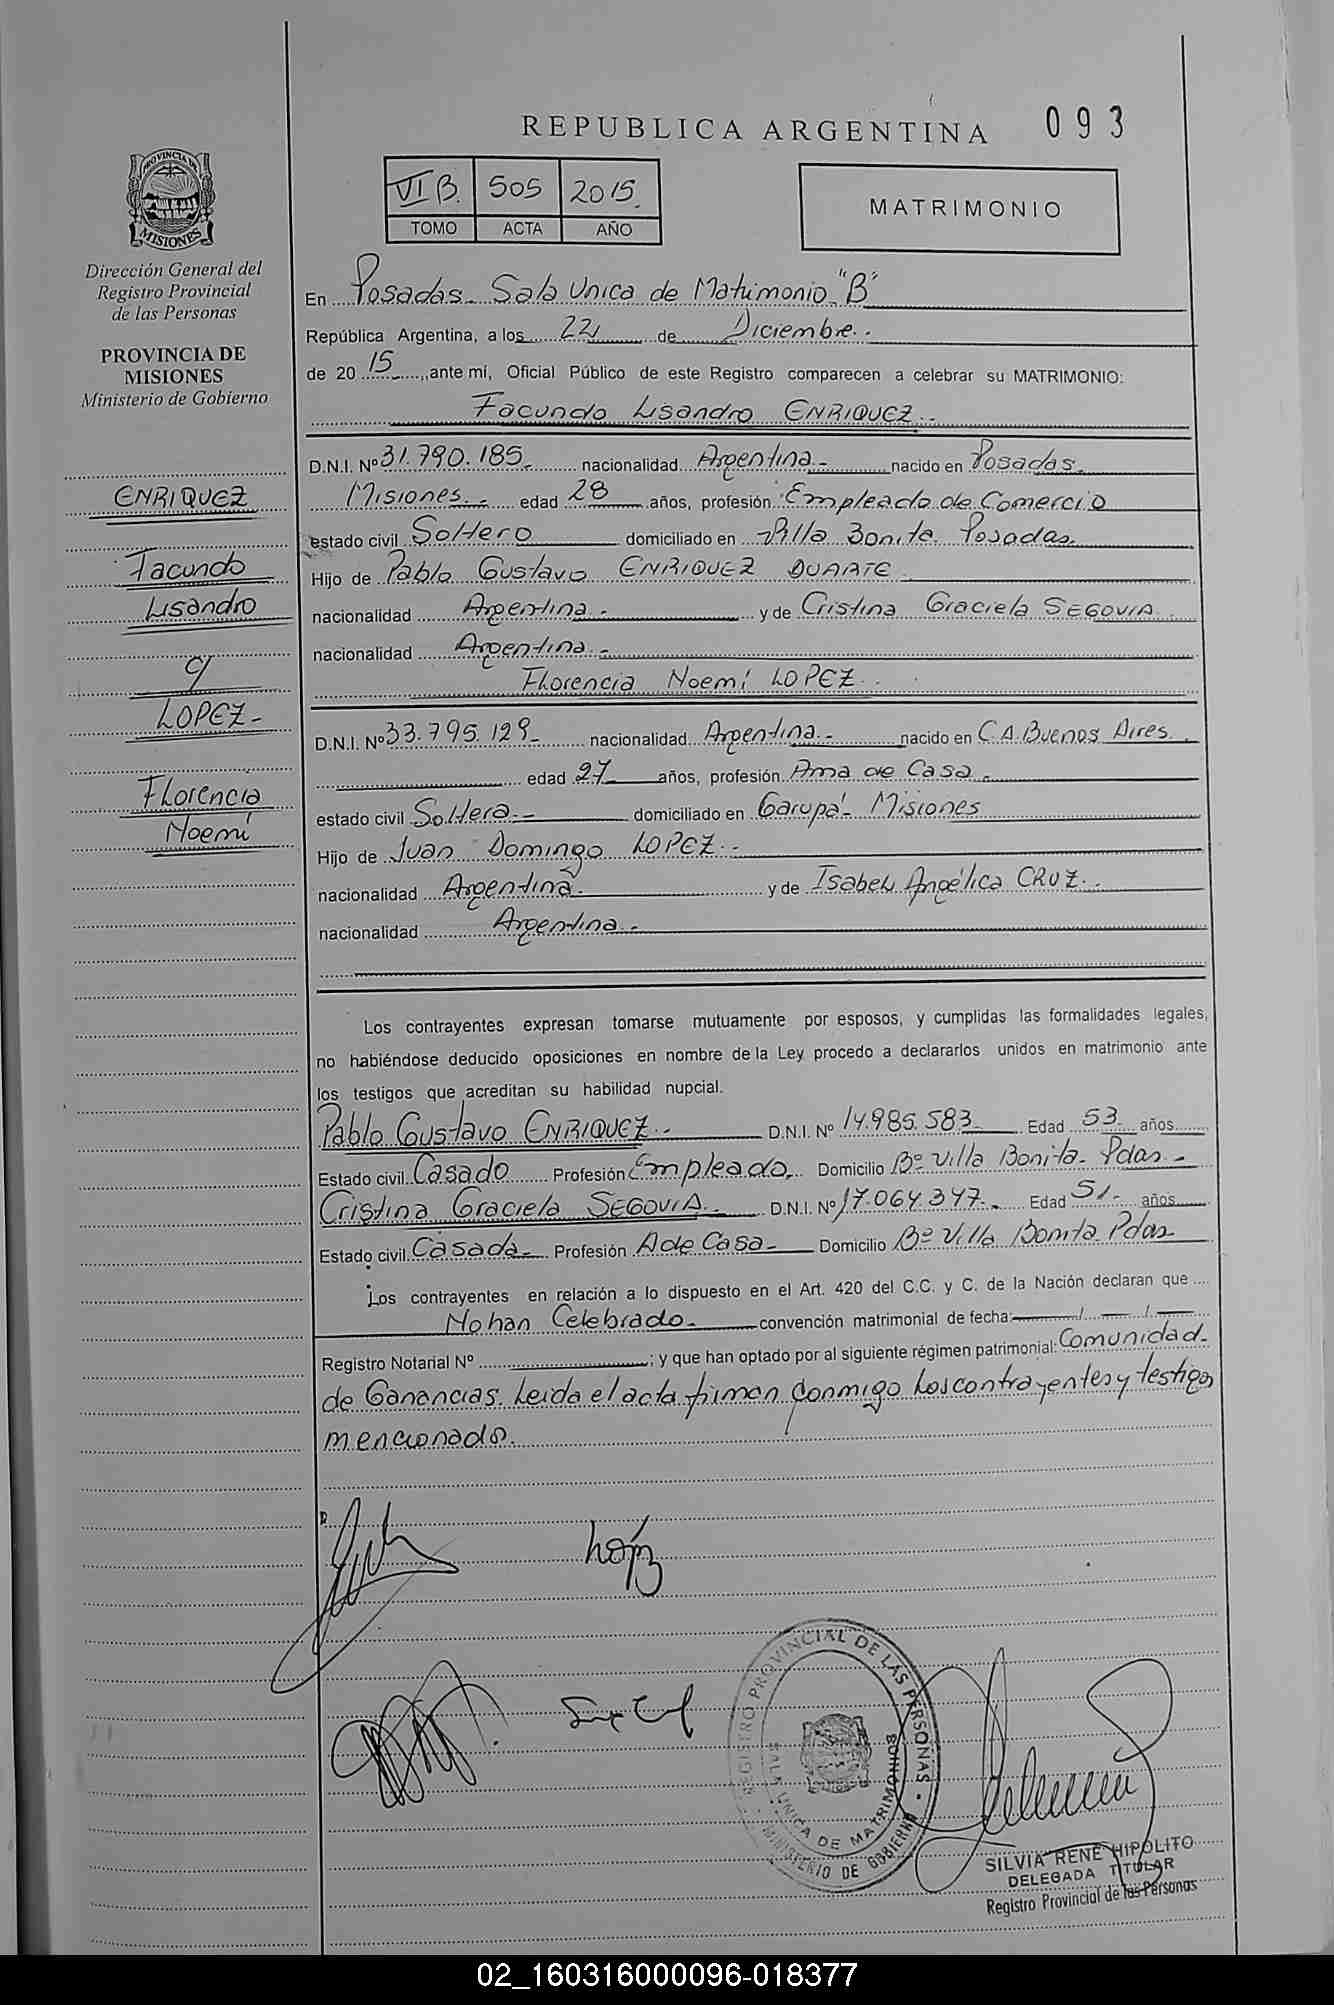 REPUBLICA ARGENTINA 093
VI B. 505 2015.
TOMO ACTA AÑO
MATRIMONIO
PROVINCIA DE
MISIONES
Dirección General del
Registro Provincial
de las Personas
PROVINCIA DE
MISIONES
Ministerio de Gobierno
ENRIQUEZ
Facundo
Lisandro
c/
LOPEZ-
Florencia
Noemí
En Posadas. Sala Unica de Matrimonio "B"
República Argentina, a los 22 de Diciembre.
de 20 15, ante mí, Oficial Público de este Registro comparecen a celebrar su MATRIMONIO:
Facundo Lisandro ENRIQUEZ.
D.N.I. Nº 31.790.185. nacionalidad Argentina- nacido en Posadas.
Misiones.- edad 28 años, profesión Empleado de Comercio
estado civil Soltero domiciliado en Villa Bonita. Posadas.
Hijo de Pablo Gustavo ENRIQUEZ DUARTE.
nacionalidad Argentina.- y de Cristina Graciela SEGOVIA.
nacionalidad Argentina.-
Florencia Noemí LOPEZ.
D.N.I. Nº 33.795.129- nacionalidad Argentina.- nacido en C.A.Buenos Aires.
edad 27 años, profesión Ama de Casa.
estado civil Soltera.- domiciliado en Garupá- Misiones
Hijo de Juan Domingo LOPEZ.-
nacionalidad Argentina. y de Isabel Angélica CRUZ.
nacionalidad Argentina.-
Los contrayentes expresan tomarse mutuamente por esposos, y cumplidas las formalidades legales,
no habiéndose deducido oposiciones en nombre de la Ley procedo a declararlos unidos en matrimonio ante
los testigos que acreditan su habilidad nupcial.
Pablo Gustavo ENRIQUEZ.- D.N.I. Nº 14.985.583- Edad 53 años
Estado civil Casado Profesión Empleado. Domicilio Bº Villa Bonita- Pdas-
Cristina Graciela SEGOVIA. D.N.I. Nº 17.064.347-. Edad 51- años
Estado civil Casada- Profesión A de Casa- Domicilio Bº Villa Bonita Pdas-
Los contrayentes en relación a lo dispuesto en el Art. 420 del C.C. y C. de la Nación declaran que
No han Celebrado- convención matrimonial de fecha: / /
Registro Notarial Nº ; y que han optado por al siguiente régimen patrimonial: Comunidad-
de Ganancias. Leida el acta firman conmigo Los contrayentes y testigos
mencionados.
López
REGISTRO PROVINCIAL DE LAS PERSONAS
SALA UNICA DE MATRIMONIOS
MINISTERIO DE GOBIERNO
SILVIA RENE HIPOLITO
DELEGADA TITULAR
Registro Provincial de las Personas
02_160316000096-018377